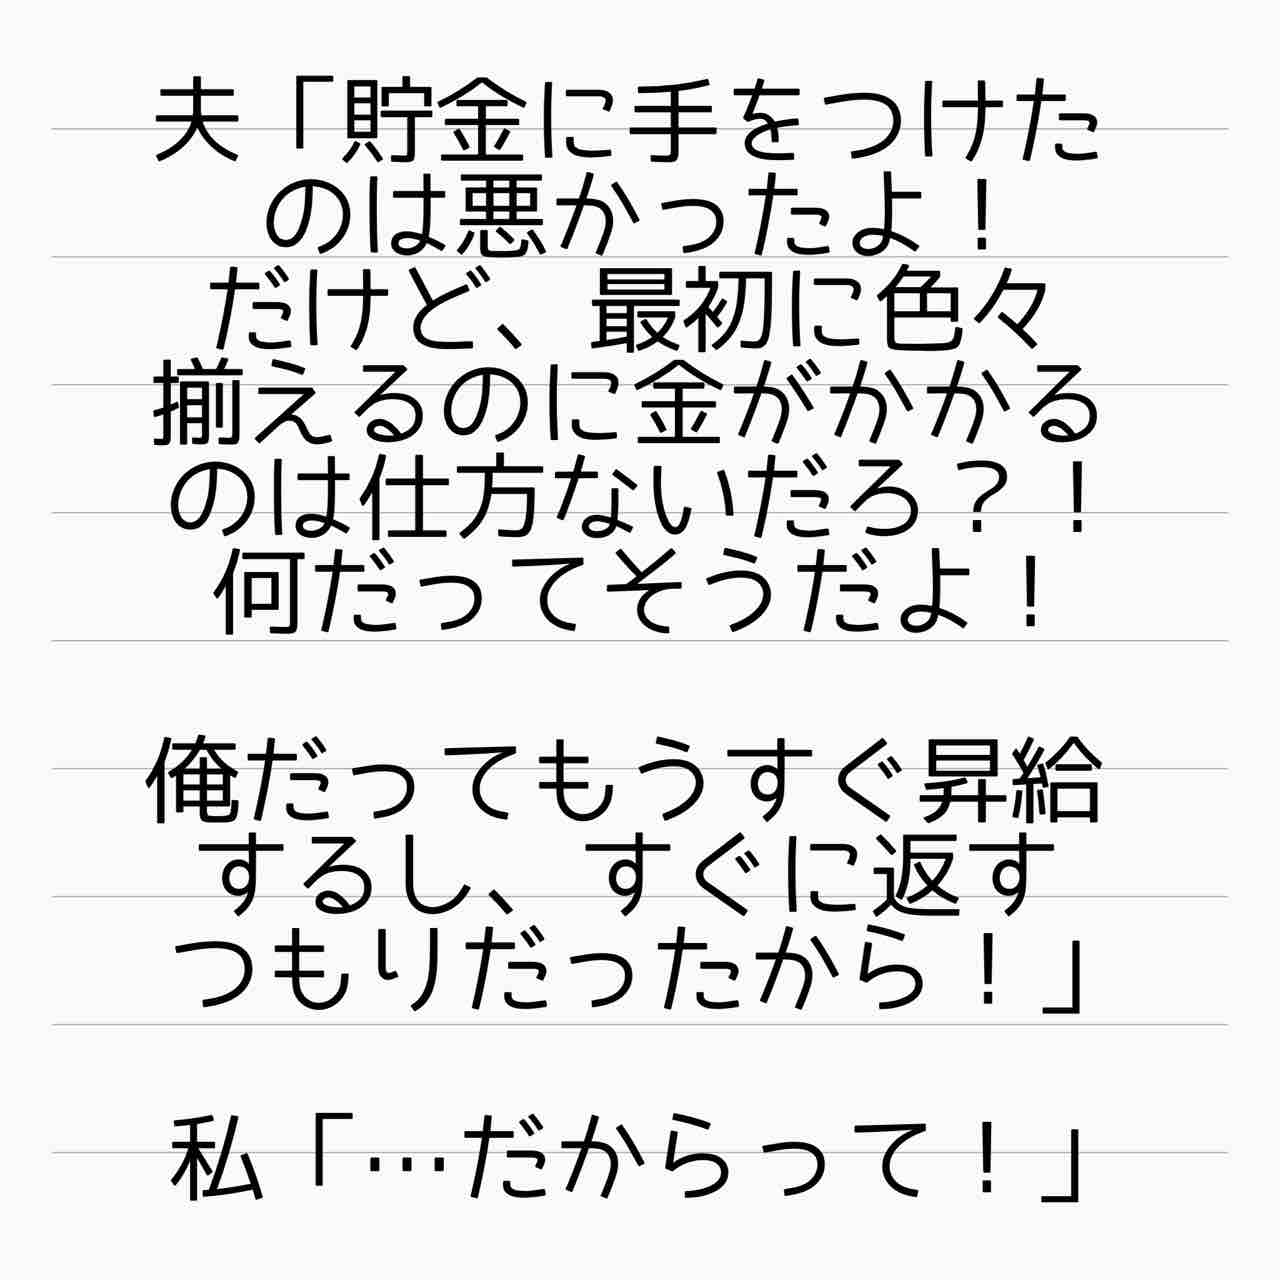 夫「貯金に手をつけた
のは悪かったよ！
だけど、最初に色々
揃えるのに金がかかる
のは仕方ないだろ？！
何だってそうだよ！
俺だってもうすぐ昇給
するし、すぐに返す
つもりだったから！」
私「…だからって！」